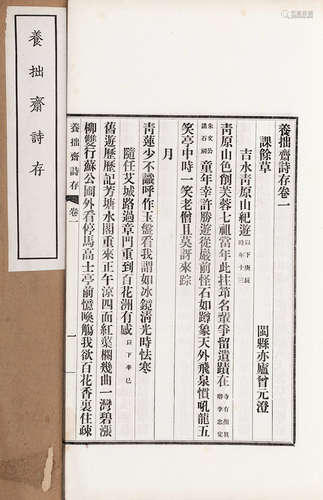 養拙齋詩存
養拙齋詩存卷一
課餘草 閩縣亦廬曾元澄
吉水青原山紀遊 以下庚辰時年十三
青原山色創芙蓉七祖當年此拄筇名輩爭留遺蹟在 寺有顏真卿李忠定
朱文公諸石刻 童年幸許勝遊從巖前怪石如蹲象天外飛泉慣吼龍五
笑亭中時一笑老僧且莫訝來踪
月
青蓮少不識呼作玉盤看我謂如冰鏡清光時怯寒
隨任艾城路過章門重到百花洲有感 以下辛巳
舊遊歷歷記芳塘水閣重來正午涼四面紅葉欄幾曲一灣碧漲
柳雙行蘇公圃外看停馬高士亭前憶喚觴我欲百花香裏住疎
養拙齋詩存 卷一 一